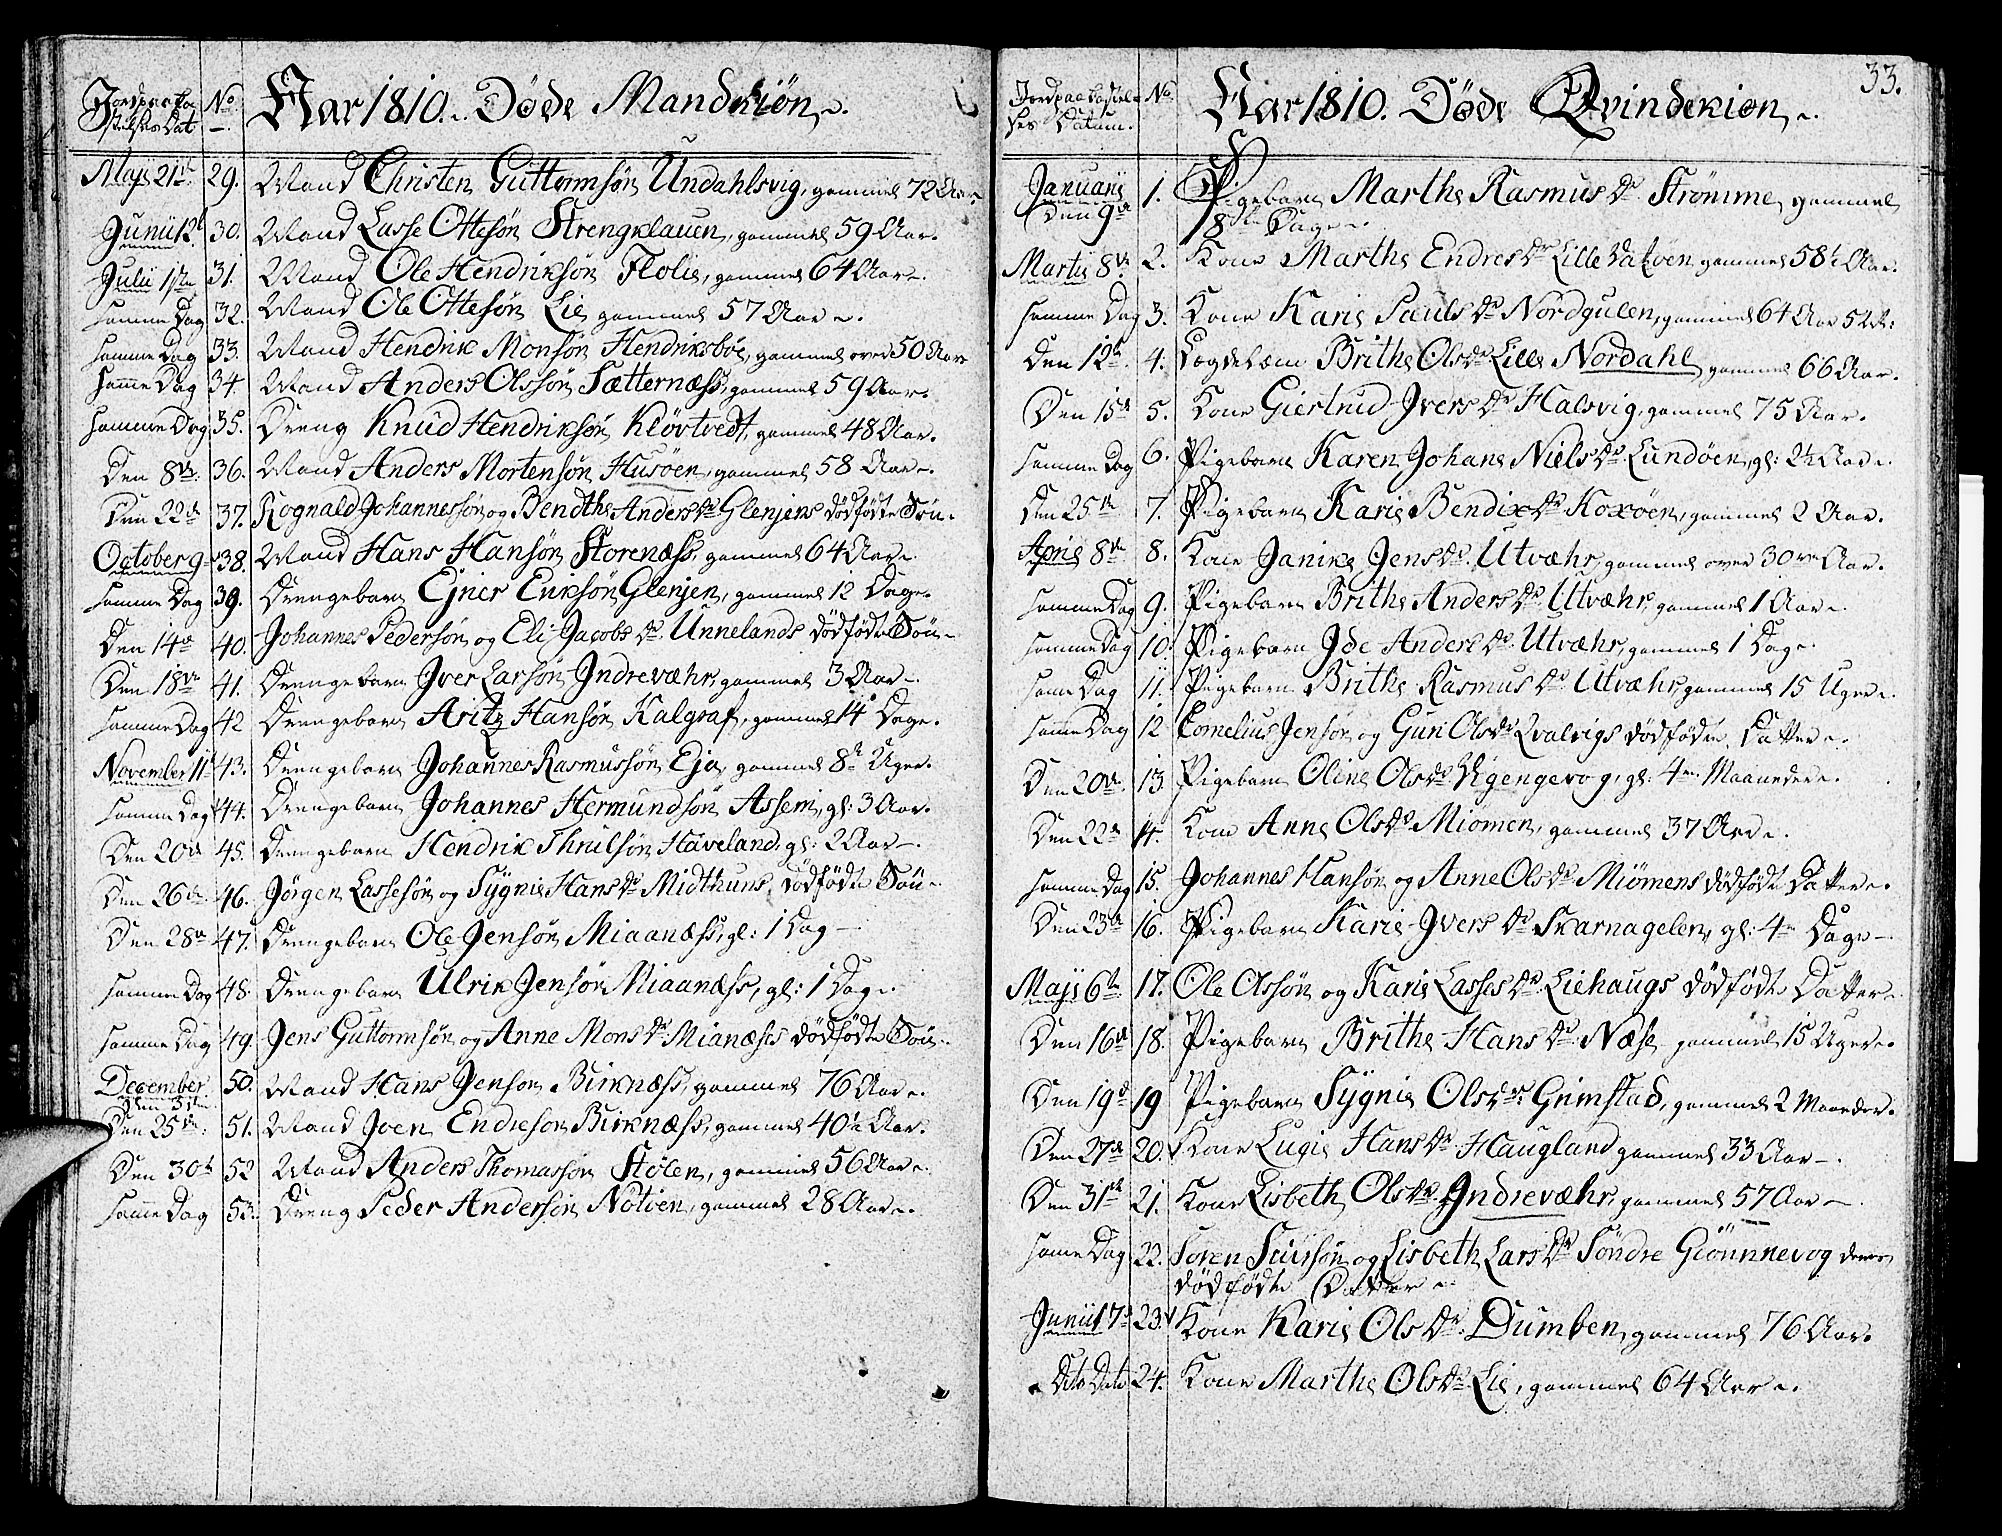 Jordpaaka-
stelses Dat
No
Aar 1810. Døde Mandkiön.
Maji 21de 29. Mand Christen Guttormsön Undahlsvig, gammel 72 Aar.
Junii 12t 30. Mand Lasse Ottesön Strengklauen, gammel 59 Aar.
Julii 1ste 31. Mand Ole Hendriksön Flolie, gammel 64 Aar.
samme Dag 32. Mand Ole Ottesön Lie gammel 57 Aar.
samme Dag 33. Mand Hendrik Monsön Hendriksböe, gammel over 50 Aar
samme Dag 34. Mand Anders Olssön Sætternæss, gammel 59 Aar.
samme Dag 35. Dreng Knud Hendriksön Klövtvedt, gammel 48 Aar.
Den 8de 36. Mand Anders Mortensön Husöen, gammel 58 Aar.
Den 22de 37. Rognald Johannessön og Bendthe Andersdr Glenjens dödfödte Sön.
October 9de 38. Mand Hans Hansön Storenæss, gammel 64 Aar.
samme Dag 39. Drengebarn Ejner Eriksön Glenjen, gammel 12 Dage.
Den 14de 40. Johannes Pedersön og Eli Jacobsdr Unnelands dödfödte Sön.
Den 18de 41. Drengebarn Jver Larsön Jndrevæhr, gammel 3 Aar.
samme Dag 42 Drengebarn Aritz Hansön Kalgraf, gammel 14 Dage.
November 11te 43. Drengebarn Johannes Rasmussön Eja, gammel 8te Uger.
samme Dag 44. Drengebarn Johannes Hermundsön Assem, gl: 3 Aar.
Den 20de 45. Drengebarn Hendrik Thrulsön Haveland, gl: 2 Aar.
Den 26de 46. Jörgen Lassesön og Sygnie Hansdr Midthuns dödfödte Sön.
Den 28de 47. Drengebarn Ole Jensön Miaanæss, gl: 1 Dag.
samme Dag 48. Drengebarn Ulrik Jensön Miaanæss, gl: 1 Dag.
samme Dag 49. Jens Guttormsön og Anne Monsdr Mianæss dödfödte Sön.
December
50. Mand Hans Jenson Birknæss, gammel 76 Aar.
Den 25de 51. Mand Joen Endreson Birknæss, gammel 40½ Aar.
Den 30t 52 Mand Anders Thomassön Stölen, gammel 56 Aar.
samme Dag 53. Dreng Peder Andersön Nötven, gammel 28 Aar.
33.
Jordpaakastel-
ses Datum.
No
Aar 1810. Døde Qvindekion.
Januarii
Den 9de 1. Pigebarn Marthe Rasmusdr Strömme, gammel
8te Dage.
Martii 8de 2. Kone Marthe Endresdr Lille Batöen gammel 58½ Aar.
samme Dag 3. Kone Karie Paulsdr Nordgulen, gammel 64 Aar
Den 12te 4. Lægdelem Brithe Olsdr Lille Nordahl gammel 66 Aar.
Den 15de 5. Kone Giertrud Jversdr Halsvig, gammel 75 Aar.
samme Dag 6. Pigebarn Karen Johane Nielsdr Lundöen, gl: 2½ Aar.
Den 25de 7. Pigebarn Karie Bendixdr Koxöen, gammel 2 Aar.
April 8de 8. Kone Janike Jensdr Utvæhr, gammel over 30ve Aar.
samme Dag 9. Pigebarn Brithe Andersdr Utvæhr, gammel 1 Aar.
samme Dag 10. Pigebarn Jde Andersdr Utvæhr, gammel 1 Dag.
same Dag 11. Pigebarn Brithe Rasmusdr Utvæhr, gammel 15 Uger.
samme Dag 12 Cornelius Jensön og Guri Olsdr Qvalvigs dödfödte Datter.
Den 20de 13. Pigebarn Oline Olsdr gl: 4re Maaneder.
Den 22de 14. Kone Anne Olsdr Miömen, gammel 37 Aar.
samme Dag 15. Johannes Hansön og Anne Olsdr Miömens dödfödte Datter.
Den 23de 16. Pigebarn Karie Jversdr Skarnagelen, gl: 4re Dage.
Maji 6te 17. Ole Olssön og Karie Lassesdr Liehaugs dödfödte Datter.
Den 16de 18. Pigebarn Brithe Hansdr Næse gammel 15 Uger.
Den 19de 19 Pigebarn Sygnie Olsdr Grimstad, gammel 2 Maaneder.
Den 27de 20. Kone Lugie Hansdr Haugland gammel 33 Aar.
Den 31te 21. Kone Lisbeth Olsdr Jndrevæhr, gammel 57 Aar.
same Dag 22. Soren og Lisbeth Larsdr Söndre Giönnevog deres
dödfödte Datter.
Junii 17de 23. Kone Karie Olsdr Dumben, gammel 76 Aar.
Dito Dato 24. Kone Marthe Olsdr Lie, gammel 64 Aar.